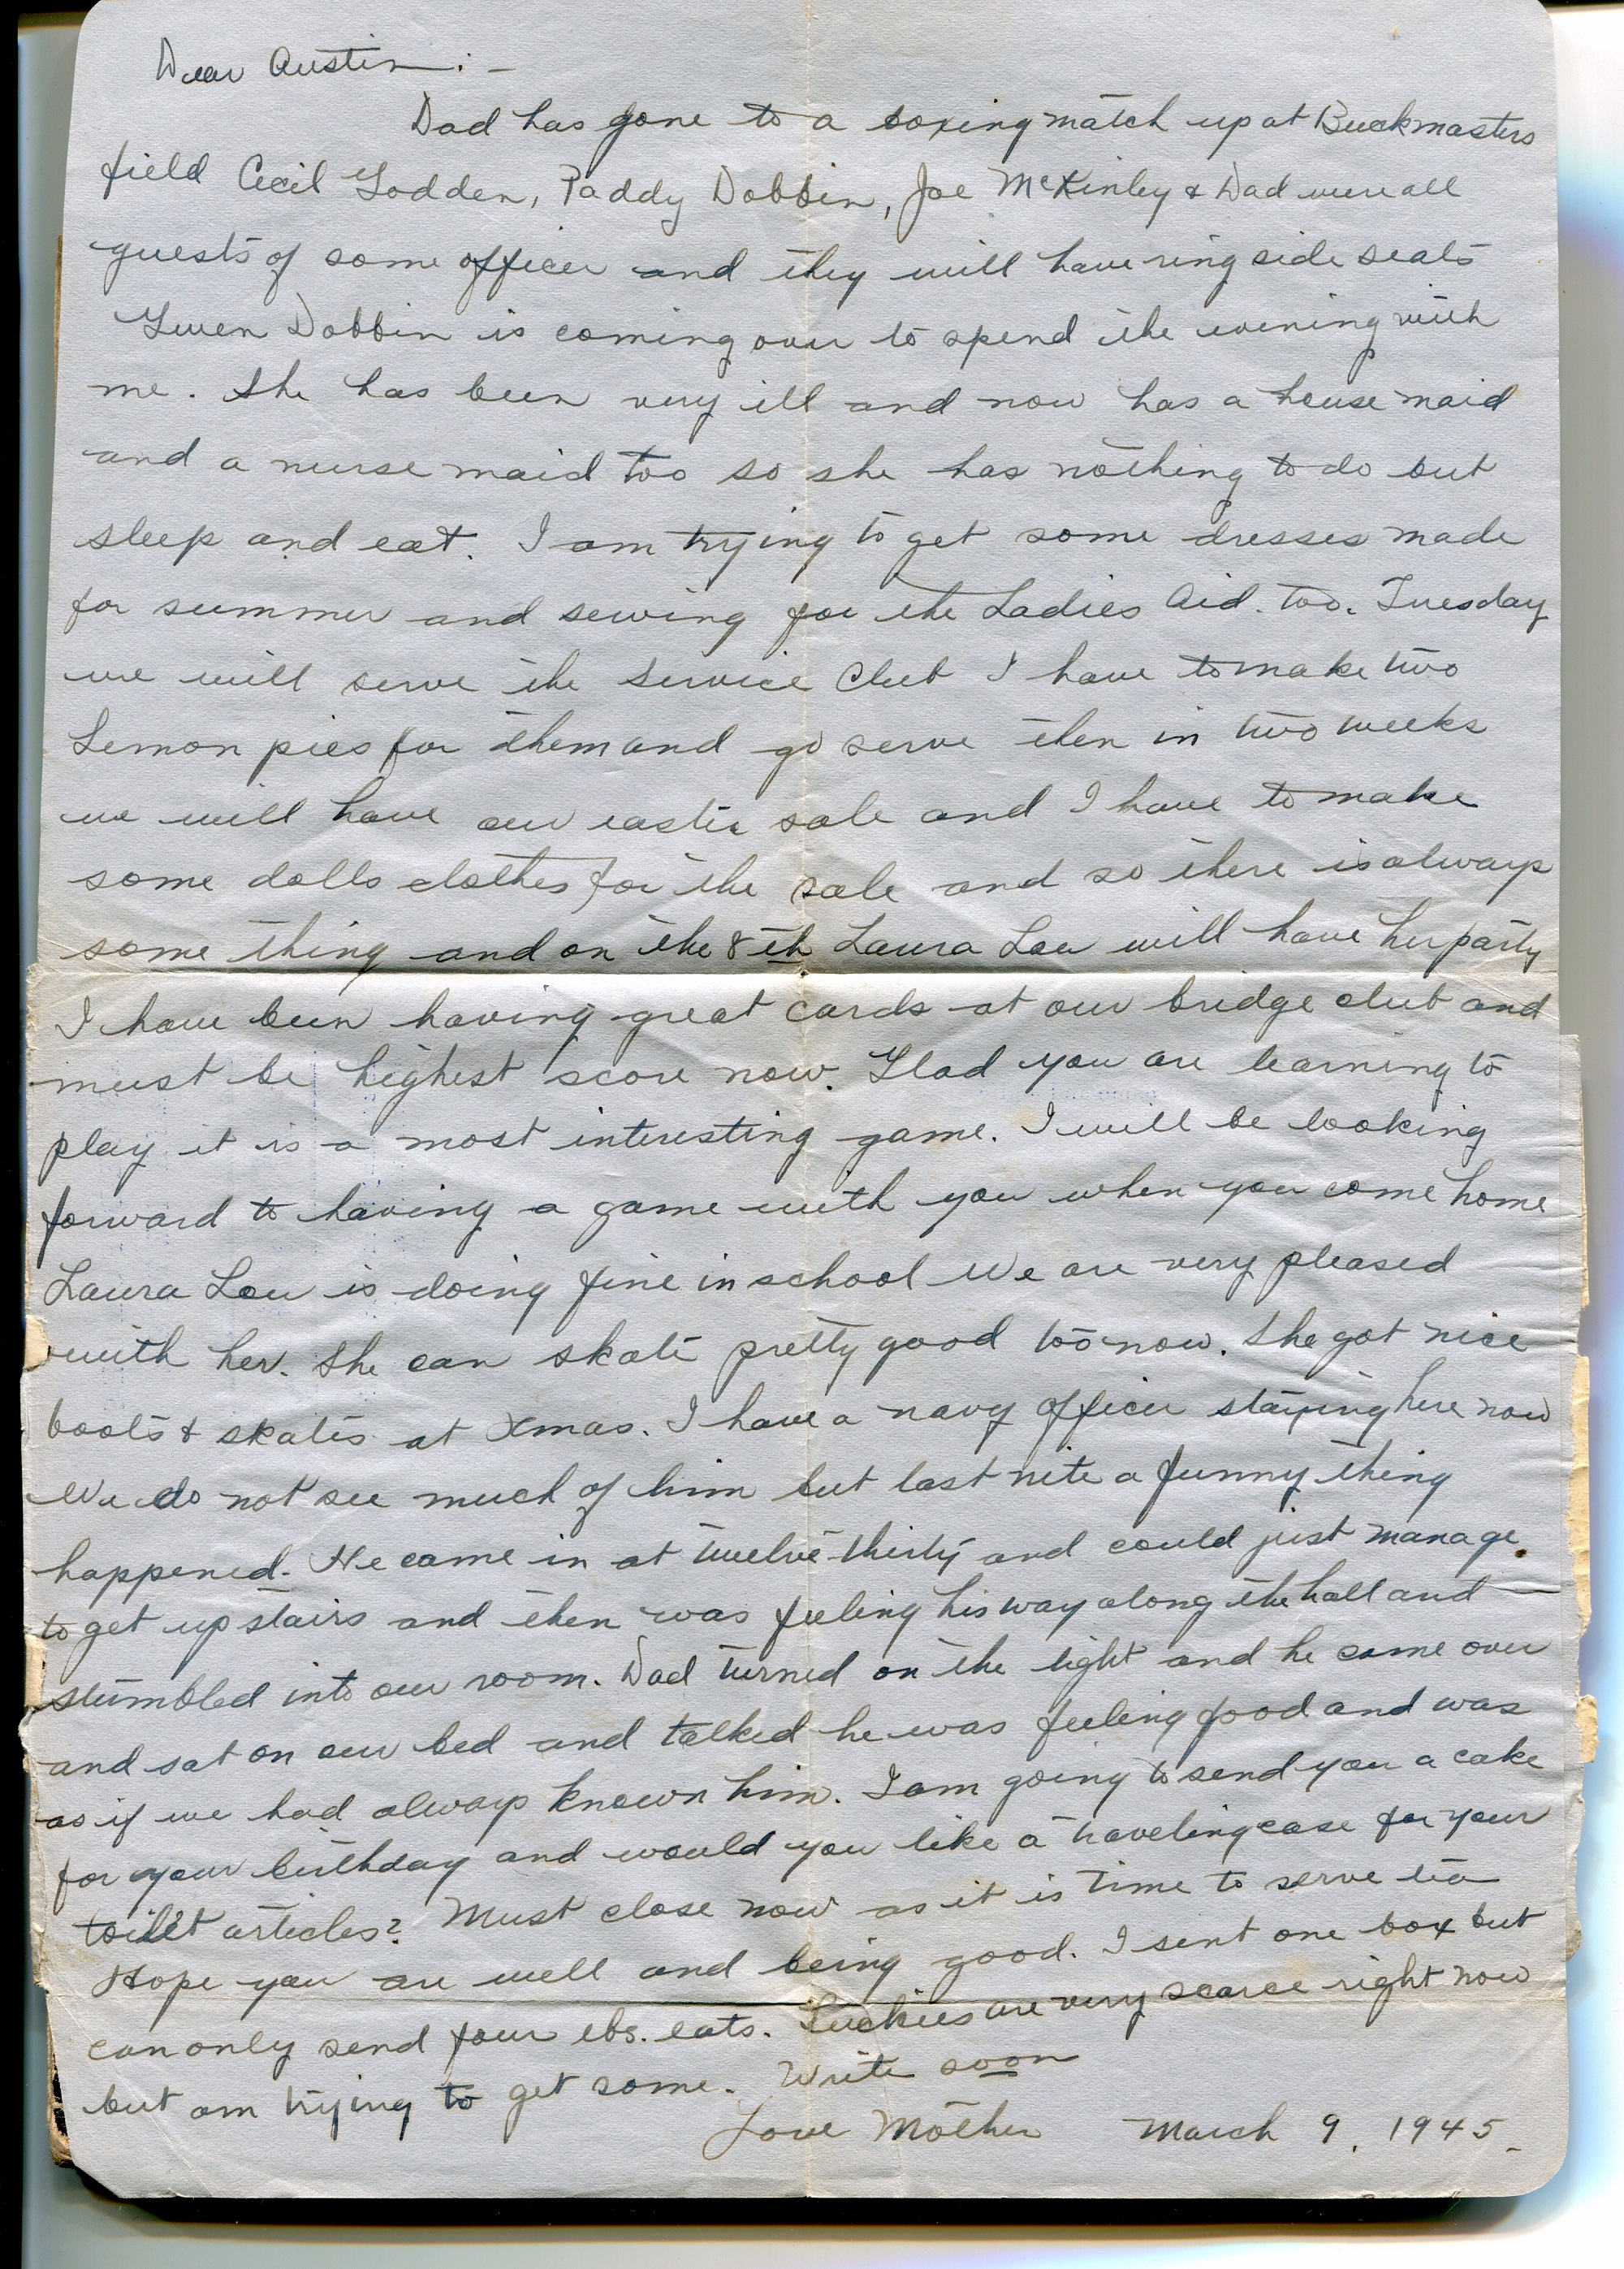 Dear Austin: -
Dad has gone to a boxing match up at Buckmasters
field Cecil Godden, Paddy Dobbin, Joe McKinley & Dad were all
guests of some officer and they will have ring side seats
Gwen Dobbin is coming over to spend the evening with
me. She has been very ill and now has a house maid
and a nurse maid too so she has nothing to do but
sleep and eat. I am trying to get some dresses made
for summer and sewing for the Ladies Aid. too. Tuesday
we will serve the Service Club I have to make two
Lemon pies for them and go serve then in two weeks
we will have our easter sale and I have to make
some dolls clothes for the sale and so there is always
some thing and on the 8th Laura Lou will have her party
I have been having great cards at our bridge club and
must be highest score now. Glad you are learning to
play it is a most interesting game. I will be looking
forward to having a game with you when you come home
Laura Lou is doing fine in school We are very pleased
with her. She can skate pretty good too now. She got nice
boots & skates at Xmas. I have a navy officer staying here now
We do not see much of him but last nite a funny thing
happened. He came in at twelve-thirty and could just manage
to get up stairs and then was feeling his way along the hall and
stumbled into our room. Dad turned on the light and he came over
and sat on our bed and talked he was feeling good and was
as if we had always known him. I am going to send you a cake
for your birthday and would you like a traveling case for your
toilet articles? Must close now as it is time to serve tea
Hope you are well and being good. I sent one box but
can only send four lbs. eats. Luckies are very scarce right now
but am trying to get some. Write soon
Love Mother March 9, 1945.